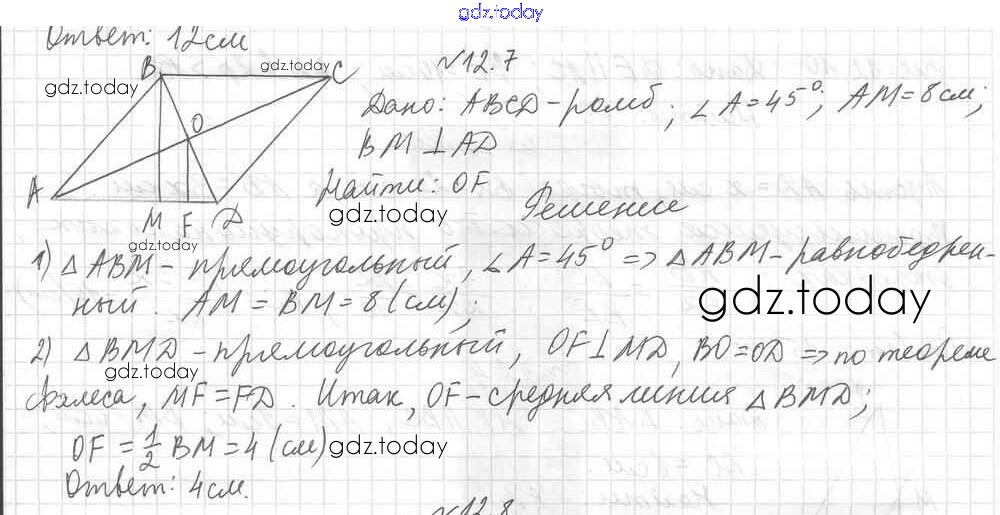 gdz.today
Ответ: 12 см
№12.7
B
C
O
A
M
F
D
gdz.today
gdz.today
Дано: ABCD-ромб; ∠A=45°; AM=8см;
BM⊥AD
Найти: OF
gdz.today
Решение
gdz.today
1) △ABM-прямоугольный, ∠A=45° => △ABM-равнобедрен-
ный. AM=BM=8(см);
gdz.today
2) △BMD-прямоугольный, OF⊥MD, BO=OD => по теореме
gdz.today
Фалеса, MF=FD. Итак, OF-средняя линия △BMD;
OF = 1/2 BM = 4 (см)
gdz.today
Ответ: 4см.
№12.8